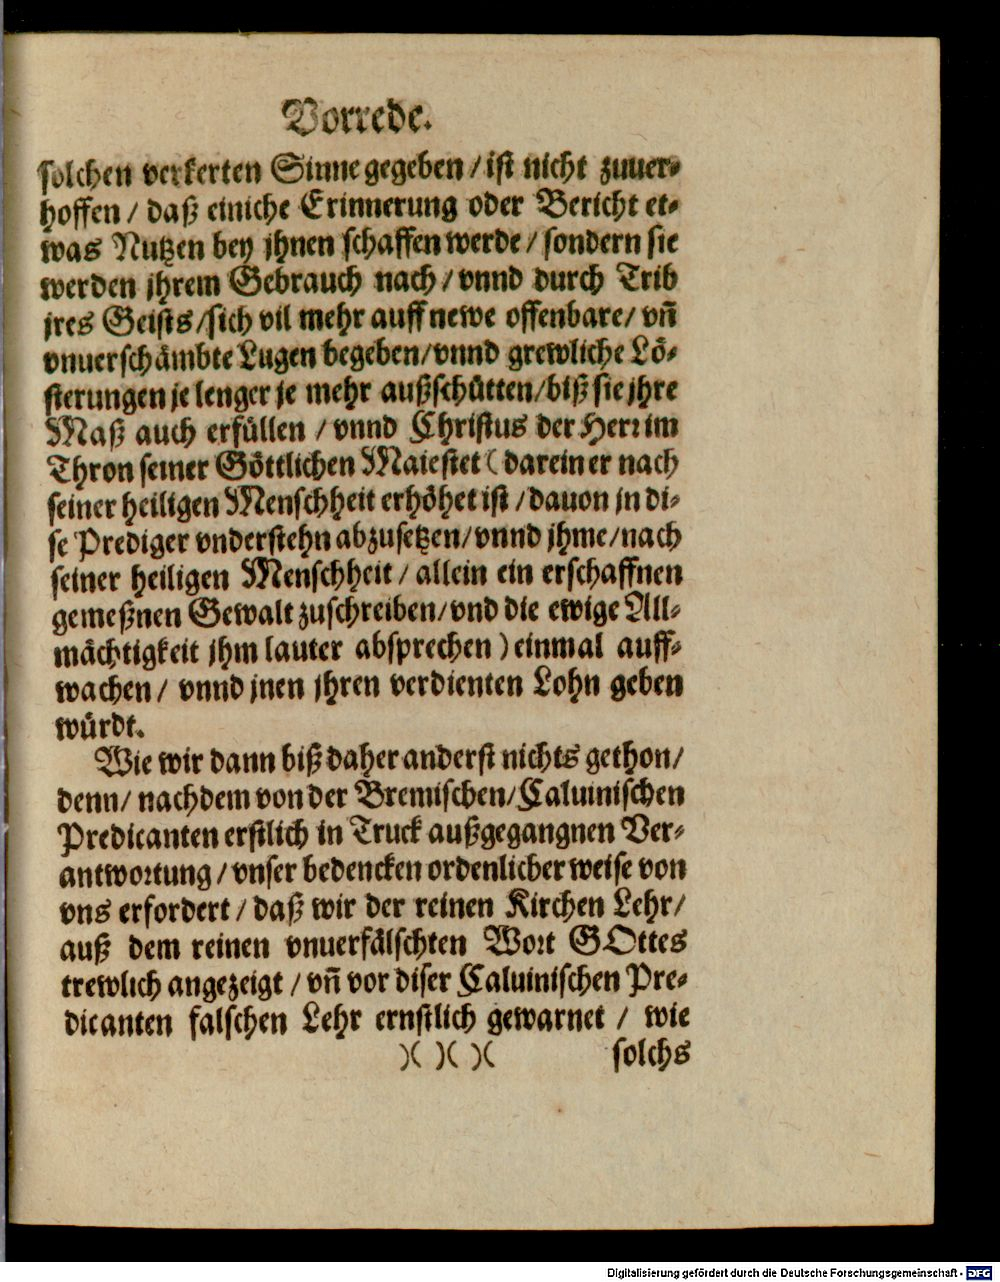 Vorrede.
solchen verkerten Sinne gegeben / ist nicht zuuer-
hoffen / daß einiche Erinnerung oder Bericht et-
was Nutzen bey jhnen schaffen werde / sondern sie
werden jhrem Gebrauch nach / vnnd durch Trib
jres Geists / sich vil mehr auff newe offenbare / vñ
vnuerschämbte Lugen begeben / vnnd grewliche Lö-
sterungen je lenger je mehr außschütten / biß sie jhre
Maß auch erfüllen / vnnd Christus der Herr im
Thron seiner Göttlichen Maiestet ( darein er nach
seiner heiligen Menschheit erhöhet ist / dauon jn di-
se Prediger vnderstehn abzusetzen / vnnd jhme / nach
seiner heiligen Menschheit / allein ein erschaffnen
gemeßnen Gewalt zuschreiben / vnd die ewige All-
mächtigkeit jhm lauter absprechen ) einmal auff-
wachen / vnnd jnen jhren verdienten Lohn geben
würdt.
Wie wir dann biß daher anderst nichts gethon /
denn / nachdem von der Bremischen / Caluinischen
Predicanten erstlich in Truck außgegangnen Ver-
antwortung / vnser bedencken ordenlicher weise von
vns erfordert / daß wir der reinen Kirchen Lehr /
auß dem reinen vnuerfälschten Wort GOttes
trewlich angezeigt / vñ vor diser Caluinischen Pre-
dicanten falschen Lehr ernstlich gewarnet / wie
)( )( )( solchs
Digitalisierung gefördert durch die Deutsche Forschungsgemeinschaft - DFG